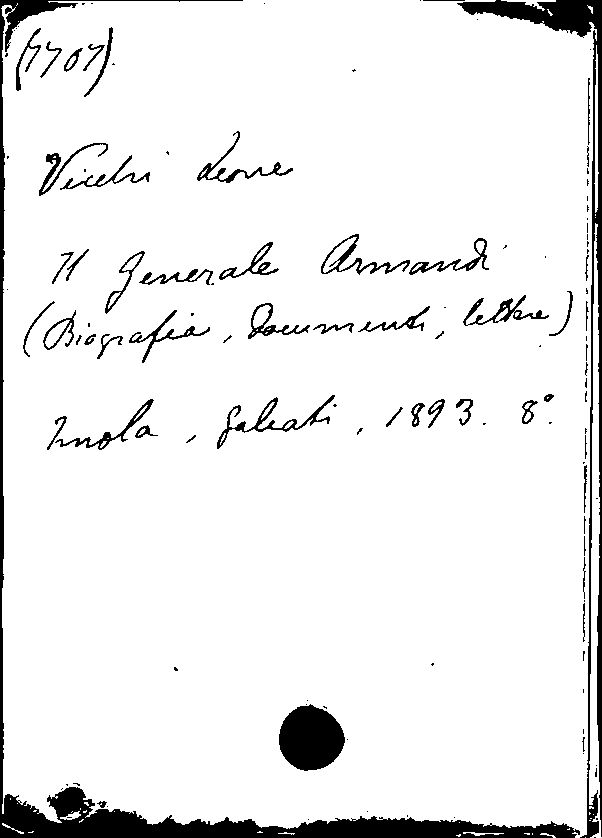 (7707)
Vicchi Leone
Il Generale Armandi
(Biografia, documenti, lettere)
Imola, Galeati, 1893. 8°.